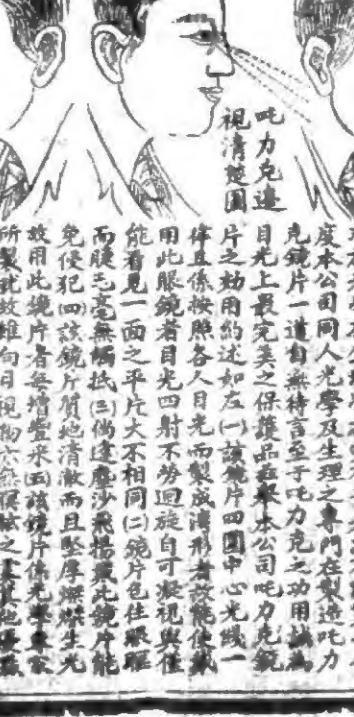 吒力克邊
視清楚圖
度本公司同人光學及生理之專門在製造吒力
克鏡片一道自無待言至于吒力克之功用誠為
目光上最完美之保護品茲舉本公司吒力克鏡
片之効用約述如左㈠該鏡片四圍中心光綫一
律且係按照各人目光而製成灣形者故能使戴
用此眼鏡者目光四射不勞迴旋自可凝視與僅
能看見一面之平片大不相同㈡鏡片包住眼眶
而睫毛毫無觸抵㈢倘逢塵沙飛揚戴此鏡片能
免侵犯㈣該鏡片質地清澈而且堅厚燦燦生光
故用此鏡片者無增豐來㈤該鏡片係光學專家
所製就故維向目視物亦無之